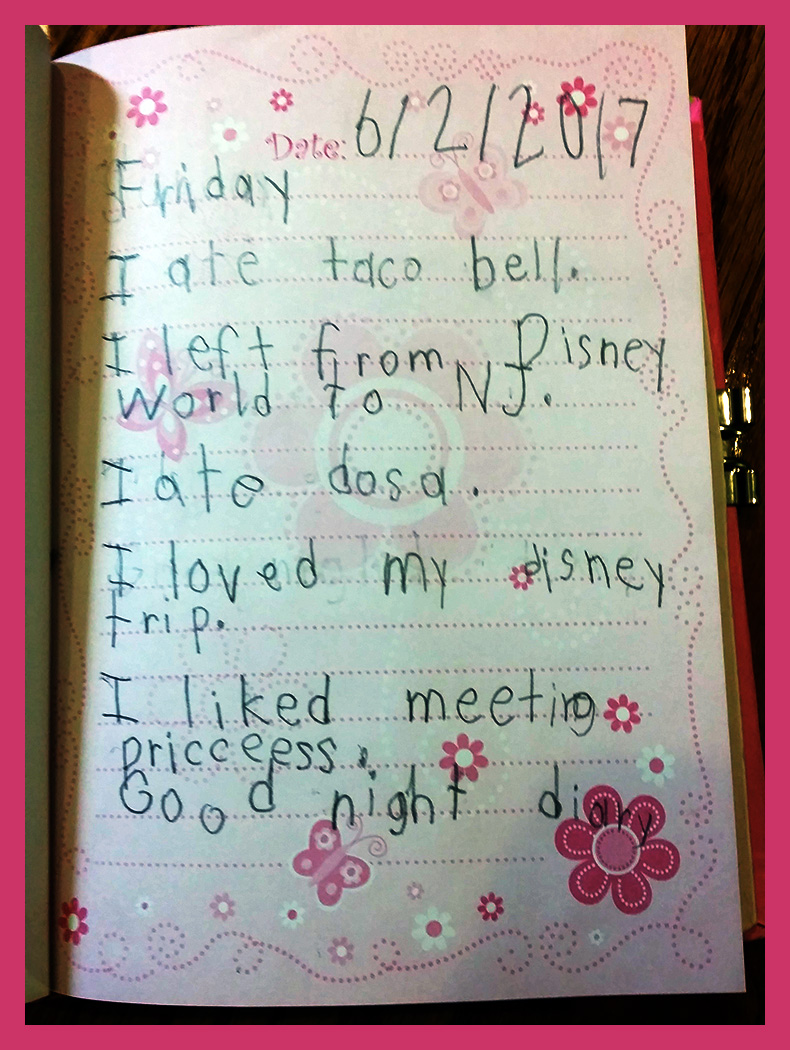 Date: 6/2/2017
Friday
I ate taco bell.
I left from Disney
World to NJ.
I ate dosa.
I loved my disney
trip.
I liked meeting
pricceess.
Good night diary